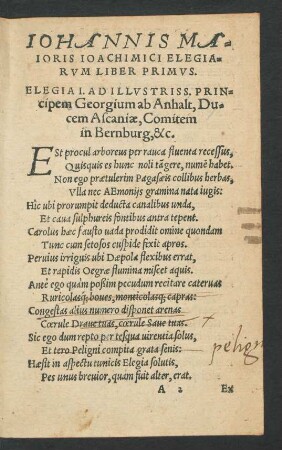 IOHANNIS MA-
IORIS IOACHIMICI ELEGIA-
RVM LIBER PRIMVS.
ELEGIA I. AD ILLVSTRISS. PRIN-
cipem Georgium ab Anhalt, Du-
cem Ascaniæ, Comitem
in Bernburg, &c.
ESt procul arboreus per rauca fluenta recessus,
Quisquis es hunc noli tãgere, numẽ habet.
Non ego prætulerim Pagasæis collibus herbas,
Vlla nec AEmonijs gramina nata iugis:
Hîc ubi prorumpit deducta canalibus unda,
Et caua sulphureis fontibus antra tepent.
Carolus hæc fausto uada prodidit omine quondam
Tunc cum setosos cuspide fixit apros.
Peruius irriguis ubi Dæpola flexibus errat,
Et rapidis Oegræ flumina miscet aquis.
Ante ego quàm possim pecudum recitare cateruas
Ruricolasq; boues, monticolasq; capras:
Congestas alius numero disponet arenas
Cœrule Draue tuas, cœrule Saue tuas.
Sic ego dum repto per tesqua uirentia solus,
Et tero Peligni compita grata senis:
peligni
Hæsit in aspectu tunicis Elegia solutis,
Pes unus breuior, quàm fuit alter, erat.
A 2 Ex